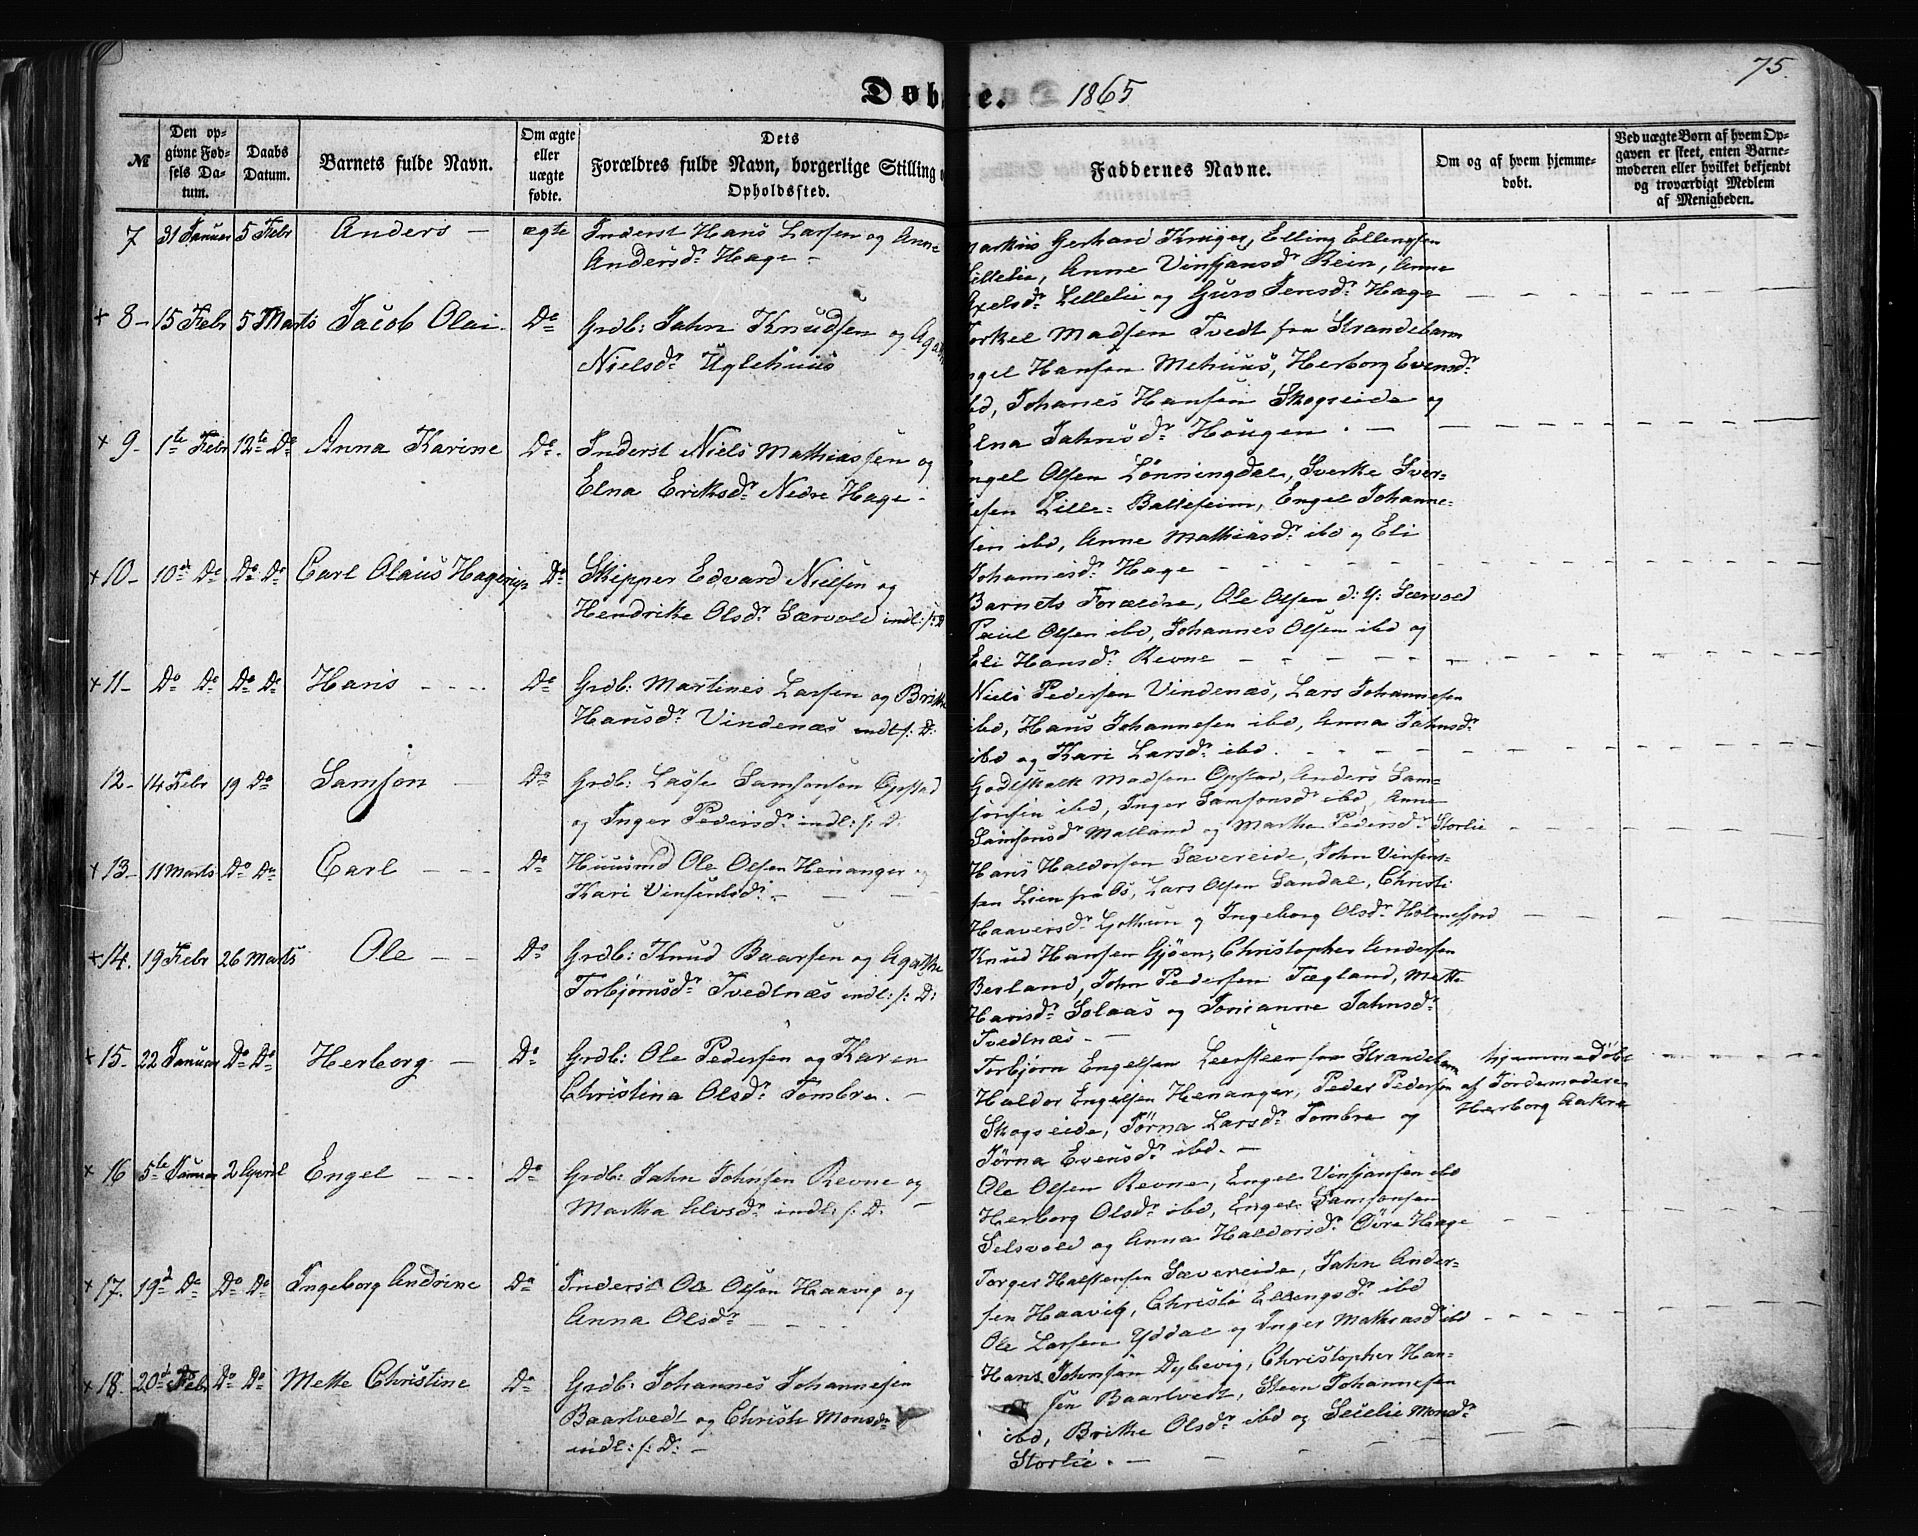 75.
Døbte. 1865
№
Den op-
givne Fød-
sels Da-
tum.
Daabs
Datum.
Barnets fulde Navn.
Om ægte
eller
uægte
fødte.
Dets
Forældres fulde Navn, borgerlige Stilling o
Opholdssted.
Faddernes Navne.
Om og af hvem hjemme-
døbt.
Ved uægte Børn af hvem Op-
gaven er skeet, enten Barne-
moderen eller hvilket bekjendt
og troværdigt Medlem
af Menigheden.
7 31 Januar 5 Febr Anders - ægte Inderst Hans Larsen og Anne
Andersdr Hage -
Markus Gerhard Krüger, Elling Ellengsen
Lillelie, Anne Vinsjansdr Rein, Anne
Axelsdr Lillelie og Guro Jensdr Hage
+ 8- 15 Febr 5 Marts Jacob Olai. Do Grdb: Jahn Knudsen og Agath
Nielsdr Uglehuus
Torkel Madsen Tvedt fra Strandebarm
ngel Hansen Mehuus, Herborg Evensdr
ibd, Johanes Hansen Skogseide og
Elna Jahnsdr Hougen. -
+ 9- 1te Febr 12te Do Anna Karine Do. Inderst Niels Mathiassen og
Elna Eriksdr Nedre Hage -
ngel Olsen Lønningdal, Sverke Sver-
kesen Lille-Balleseim, Engel Johanne-
sen ibd, Anne Mathiasdr ibd og Eli
Johannesdr Hage - - -
+10- 10de Do Do Do Carl Olaus Hagerup Do Skipper Edvard Nielsen og
Hendrike Olsdr Særvold indl: f: D
Barnets Forældre, Ole Olsen d: y: Særvold
Paul Olsen ibd, Johannes Olsen ibd og
Eli Hansdr Revne - - -
+11- Do Do Do Do Hans - - - Do Grdb: Martines Larsen og Brithe
Hansdr Vindenæs indl f: D:
Niels Pedersen Vindenæs, Lars Johannesen
ibd, Hans Johannesen ibd, Anna Jahnsdr
ibd og Kari Larsdr ibd. - - -
12- 14 Febr 19 Do Samson - Do Grdb: Lasse Samsonsen Opstad
og Inger Pedersdr indl: f: D:
Godtskalk Madsen Opstad, Anders Sam-
sonsen ibd, Inger Samsonsdr ibd, Anne
Samsonsdr Malland og Martha Pedersdr Storlie
+13- 11 Marts Do Do Carl - - - Do Huusmd Ole Olsen Henanger og
Kari Vinsentsdr. - - -
Hans Haldorsen Sævereide, John Vinsens-
sen Lien fra Os, Lars Olsen Sandal, Christi
Haaversdr Gjothun og Ingeborg Olsdr Holmefjord
+14. 19 Febr 26 Marts Ole - - Do Grdb: Knud Baarsen og Agathe
Torbjørnsdr Tvedtnæs indl: f: D:
Knud Hansen Gjøen, Christopher Andersen
Berland, John Pedersen Tægland, Mette
Hansdr Solaas og Jorianne Jahnsdr
Tvedtnæs. -
+15- 22 Januar Do Do Herborg - Do Grdb: Ole Pedersen og Karen
Christina Olsdr Tombre. -
Torbjørn Engelsen Leersteen fra Strandebarm
Haldor Engelsen Henanger, Peder Pedersen
Skogseide, Jørna Larsdr Tombre og
Jørna Evensdr ibd. -
hjemmedøbt
af Jordemoderen
Herborg Aakre
+ 16 5te Januar 2 April Engel - - - Do Grdb: Jahn Johnsen Revne og
Martha Alvsdr indl: f: D.
Ole Olsen Revne, Engel Vinsjansen ibd
Herborg Olsdr ibd, Engel Samsonsen
Selsvold og Anna Haldorsdr Øvre Hage
+17. 19de Do Do Do Ingeborg Andrine Do Inderst Ole Olsen Haavig og
Anna Olsdr - - -
Torger Halstensen Sævereide, Jahn Ander-
sen Haavig, Christi Ellengsdr ibd
Ole Larsen Yddal og Inger Mathiasdr ibd
+18. 20de Febr Do Do Mette Christine Do Grdb: Johannes Johannesen
Baartvedt og Christi Monsdr
indl: f: D: -
Hans Johnsen Dybevig, Christopher Han-
sen Baartvedt, Steen Johannesen
ibd, Brithe Olsdr ibd og Seselie Monsdr
Storlie. - - -